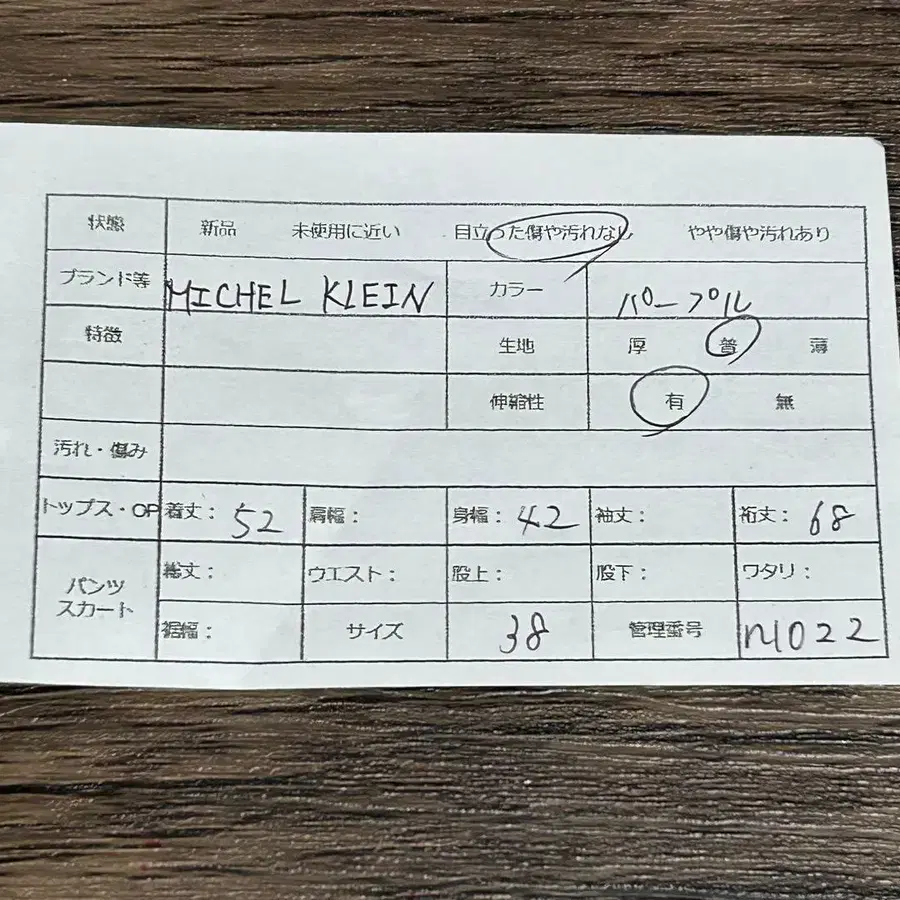 状態 新品 未使用に近い 目立った傷や汚れなし やや傷や汚れあり
ブランド等 MICHEL KLEIN カラー パープル
特徴 生地 厚 普 薄
伸縮性 有 無
汚れ・傷み
トップス・OP 着丈: 52 肩幅: 身幅: 42 袖丈: 裄丈: 68
パンツ スカート 総丈: ウエスト: 股上: 股下: ワタリ:
裾幅: サイズ 38 管理番号 n1022